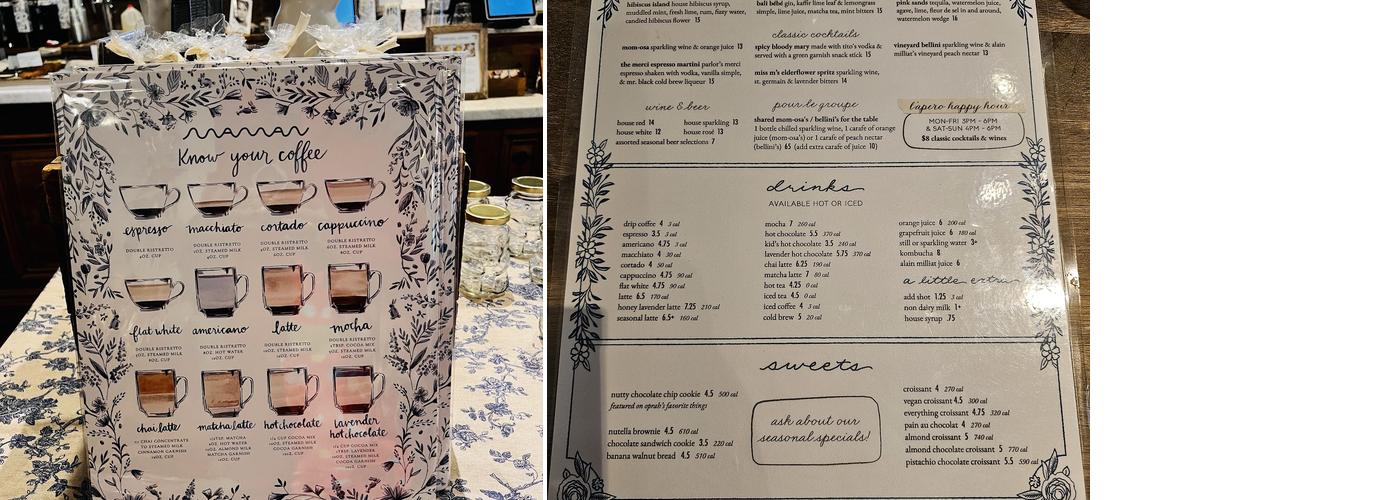 maman
Know your coffee
espresso
DOUBLE RISTRETTO
4OZ. CUP
macchiato
DOUBLE RISTRETTO
2OZ. STEAMED MILK
4OZ. CUP
cortado
DOUBLE RISTRETTO
4OZ. CUP
cappuccino
DOUBLE RISTRETTO
6OZ. CUP
flat white
DOUBLE RISTRETTO
8OZ. CUP
americano
DOUBLE RISTRETTO
8OZ. HOT WATER
12OZ. CUP
latte
DOUBLE RISTRETTO
12OZ. CUP
mocha
DOUBLE RISTRETTO
12OZ. CUP
chai latte
TO STEAMED MILK
CINNAMON GARNISH
12OZ. CUP
matcha latte
MATCHA GARNISH
12OZ. CUP
hot chocolate
COCOA GARNISH
12OZ. CUP
lavender
hot chocolate
COCOA GARNISH
12OZ. CUP
hibiscus island hibiscus syrup,
muddled mint, fresh lime, rum, fizzy water,
candied hibiscus flower 15
bali bébé gin, kaffir lime leaf & lemongrass
simple, lime juice, matcha tea, mint bitters 15
pink sands tequila, watermelon juice,
agave, lime, fleur de sel in and around,
watermelon wedge 16
classic cocktails
mom-osa sparkling wine & orange juice 13
the merci espresso martini parlor's merci
espresso shaken with vodka, vanilla simple,
& mr. black cold brew liqueur 15
spicy bloody mary made with tito's vodka &
served with a green garnish snack stick 15
miss m's elderflower spritz sparkling wine,
st. germain & lavender bitters 14
vineyard bellini sparkling wine & alain
milliat's vineyard peach nectar 13
wine & beer
house red 14
house white 12
house sparkling 13
house rosé 13
assorted seasonal beer selections 7
pour le groupe
shared mom-osa's / bellini's for the table
1 bottle chilled sparkling wine, 1 carafe of orange
juice (mom-osa's) or 1 carafe of peach nectar
(bellini's) 65 (add extra carafe of juice 10)
l'apero happy hour
MON-FRI 3PM - 6PM
& SAT-SUN 4PM - 6PM
$8 classic cocktails & wines
drinks
AVAILABLE HOT OR ICED
drip coffee 4 3 cal
espresso 3.5 3 cal
americano 4.75 3 cal
macchiato 4 30 cal
cortado 4 50 cal
cappuccino 4.75 90 cal
flat white 4.75 90 cal
latte 6.5 170 cal
honey lavender latte 7.25 210 cal
seasonal latte 6.5+ 160 cal
mocha 7 260 cal
hot chocolate 5.5 370 cal
kid's hot chocolate 3.5 240 cal
lavender hot chocolate 5.75 370 cal
chai latte 6.25 190 cal
matcha latte 7 80 cal
hot tea 4.25 0 cal
iced tea 4.5 0 cal
iced coffee 4 3 cal
cold brew 5 20 cal
orange juice 6 200 cal
grapefruit juice 6 180 cal
still or sparkling water 3+
kombucha 8
alain milliat juice 6
a little extra
add shot 1.25 3 cal
non dairy milk 1+
house syrup .75
sweets
nutty chocolate chip cookie 4.5 500 cal
featured on oprah's favorite things
nutella brownie 4.5 610 cal
chocolate sandwich cookie 3.5 220 cal
banana walnut bread 4.5 510 cal
ask about our
seasonal specials!
croissant 4 270 cal
vegan croissant 4.5 300 cal
everything croissant 4.75 320 cal
pain au chocolat 4 270 cal
almond croissant 5 740 cal
almond chocolate croissant 5 770 cal
pistachio chocolate croissant 5.5 590 cal